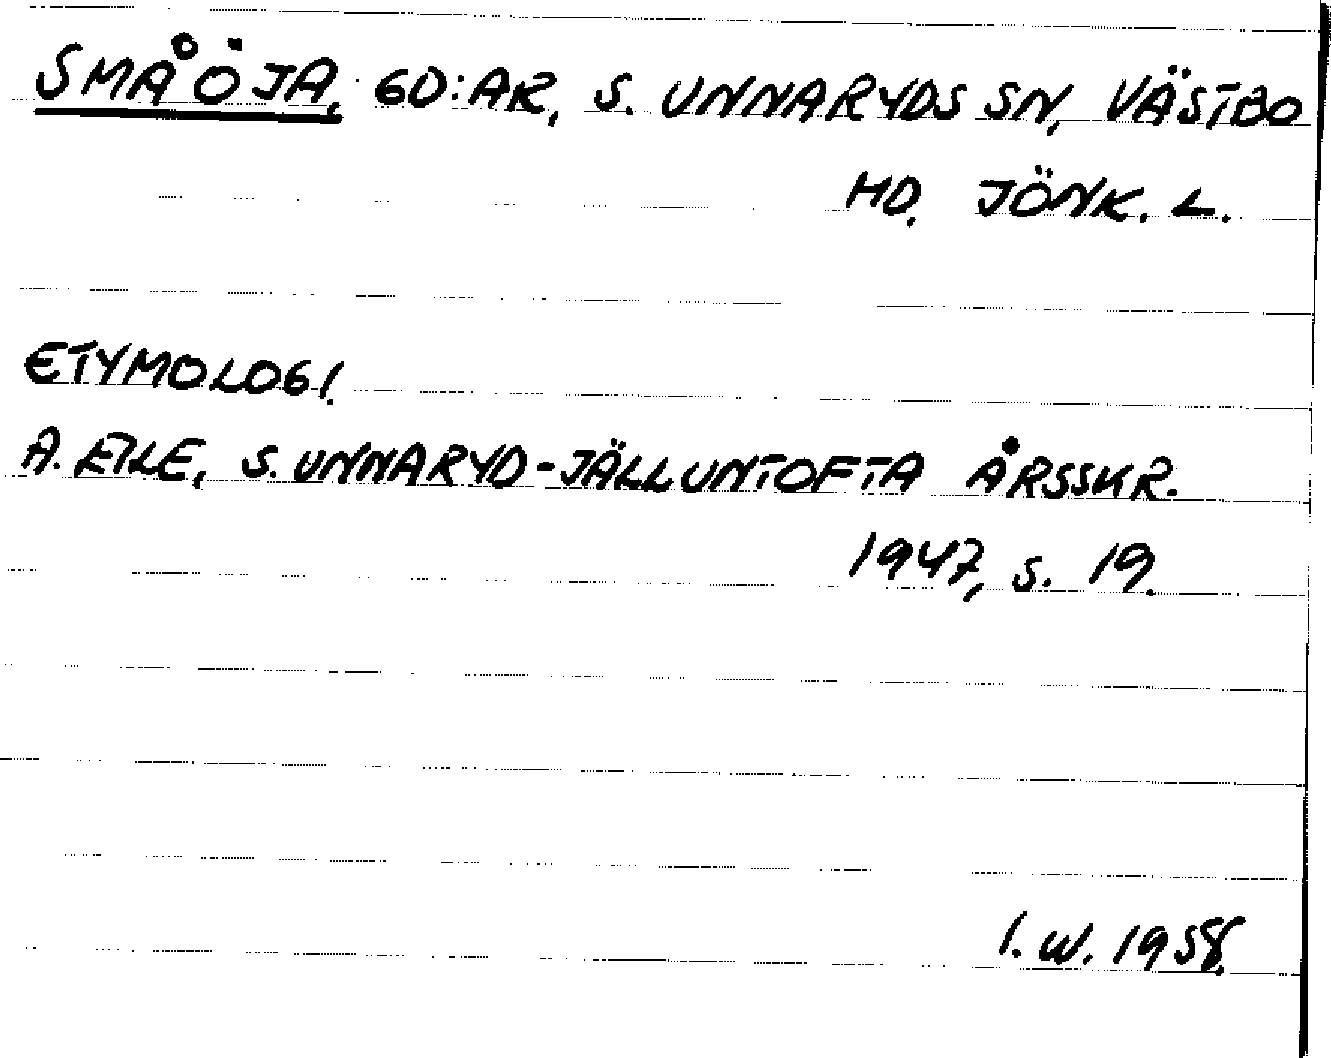 SMÅÖJA, GD:AR, S. UNNARYDS SN, VÄSTBO
HD. JÖNK. L.
ETYMOLOGI.
A. EILE, S. UNNARYD-JÄLLUNTOFTA ÅRSSKR.
1947, s. 19.
I. W. 1958.